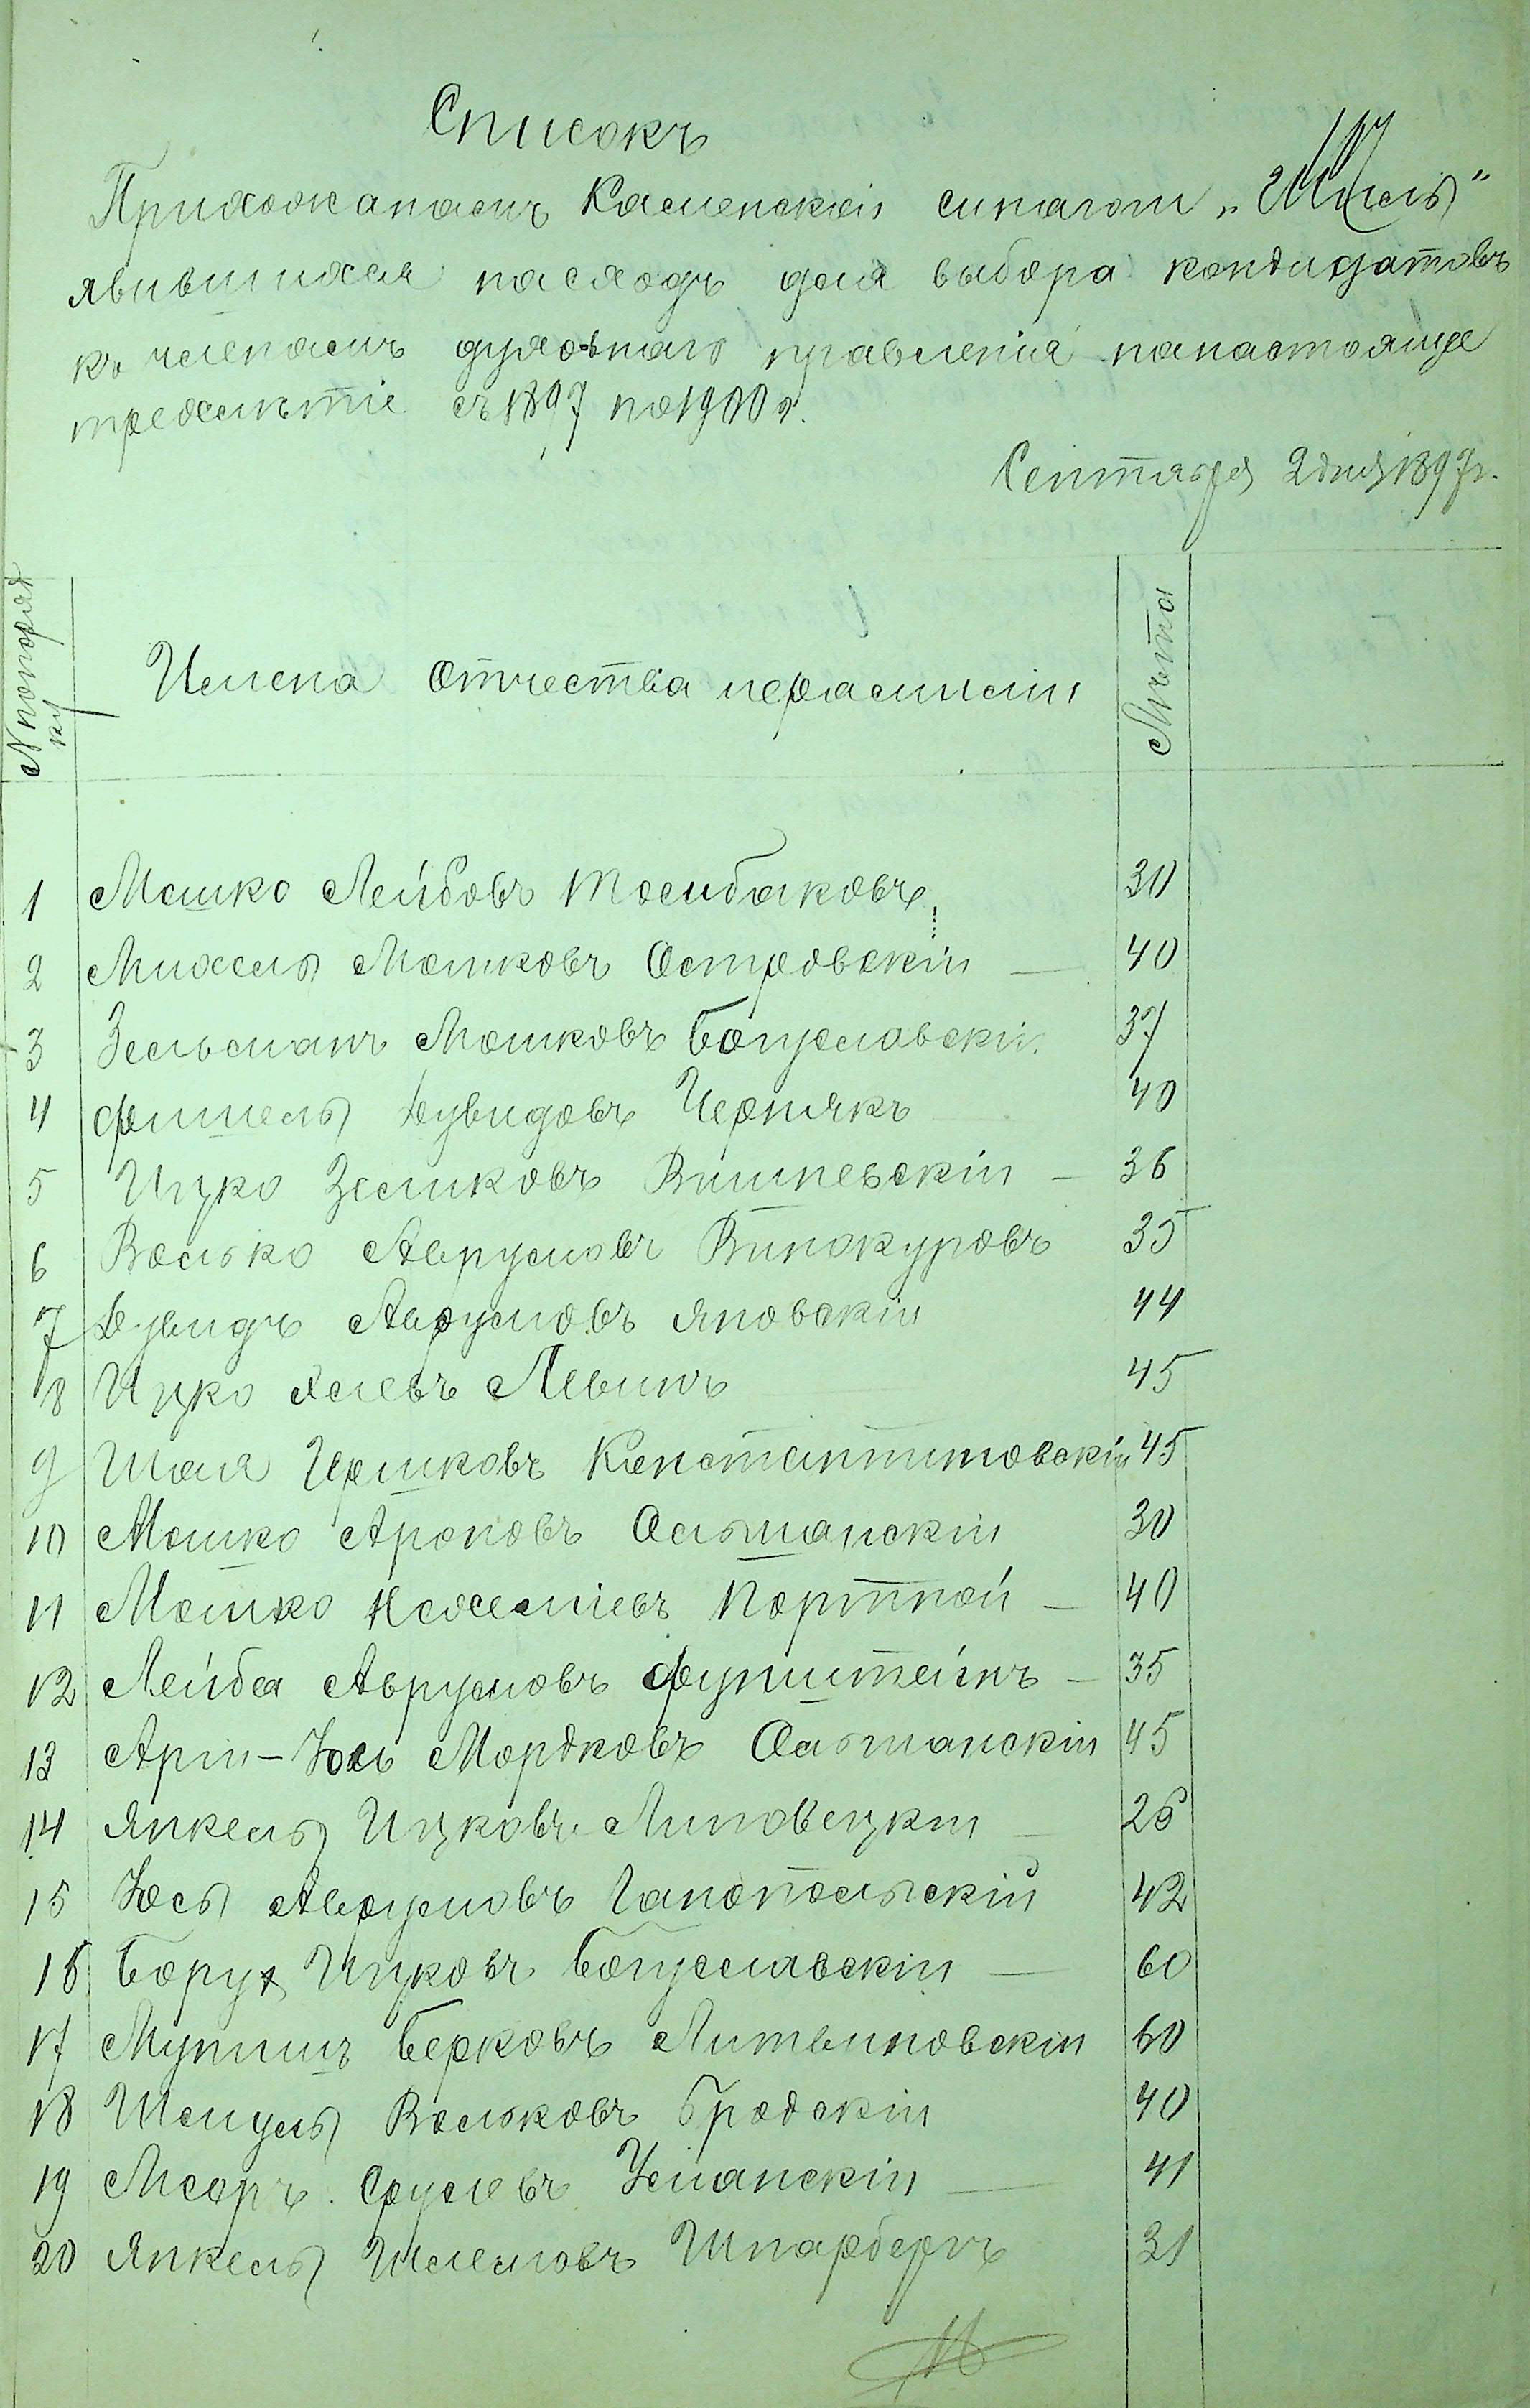 Списокъ
Прихожанамъ Каменской синагоги „
явившихся насходъ для выбора кондидатовъ
къ членамъ духовнаго правленія нанастояще
трехлѣтіе съ 1897 по 1900 г.
Сентября 2 дня 1897 г.
№ попоряд
ку
Имена Отчества ифамиліи
Лѣта
1 Мошко Лейбовъ Толибаковъ 30
2 Михель Мошковъ Островскій — 40
3 Зельманъ Мошковъ Богуславскій 37
4 Фишель Дувидовъ Чернякъ 40
5 Ицко Зеликовъ Вишневскій — 36
6 Волько Аврумовъ Винокуровъ 35
7 Дувидъ Аврумовъ Яновскій 44
8 Ицко Хемевъ Левинъ 45
9 Шая Гершковъ Констентиновскій 45
10 Мошко Ароновъ Ольшанскій 30
11 Мошко Нехеміевъ Портной — 40
12 Лейба Аврумовъ Фунштейнъ — 35
13 Арій-Юсь Мордковъ Ольшанскій 45
14 Янкель Ицковъ Липовецкій — 26
15 Юсь Аврумовъ Ганопольскій 42
16 Борух Ицковъ Богуславскій — 60
17 Мунишъ Берковъ Литвиновскій 60
18 Шмуль Вольковъ Бродскій 40
19 Мееръ Срулевъ Уманскій — 41
20 Янкель Шлемовъ Шпарбергъ 31